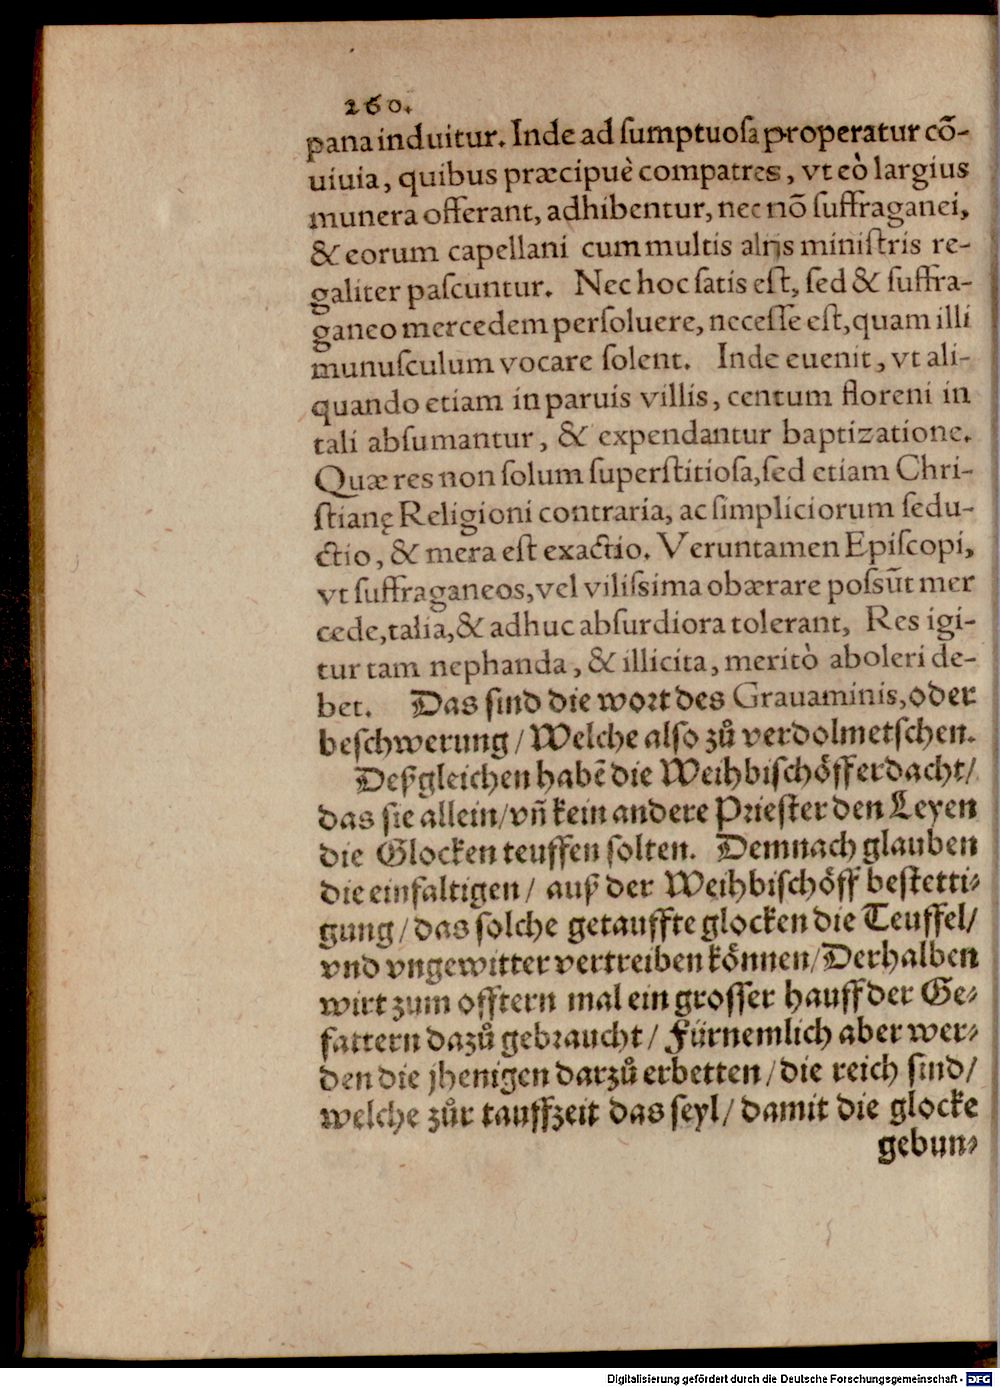 260.
pana induitur. Inde ad ſumptuoſa properatur cõ-
uiuia, quibus præcipuè compatres, vt eò largius
munera offerant, adhibentur, nec nõ ſuffraganei,
& eorum capellani cum multis alijs miniſtris re-
galiter paſcuntur. Nec hoc ſatis eſt, ſed & ſuffra-
ganeo mercedem perſoluere, neceſſe eſt, quam illi
munuſculum vocare ſolent. Inde euenit, vt ali-
quando etiam in paruis villis, centum floreni in
tali abſumantur, & expendantur baptizatione.
Quæ res non ſolum ſuperſtitioſa, ſed etiam Chri-
ſtianę Religioni contraria, ac ſimpliciorum ſedu-
ctio, & mera eſt exactio. Veruntamen Epiſcopi,
vt ſuffraganeos, vel viliſsima obærare poſsũt mer
cede, talia, & adhuc abſurdiora tolerant, Res igi-
tur tam nephanda, & illicita, meritò aboleri de-
bet. Das ſind die wort des Grauaminis, oder
beſchwerung / Welche alſo zů verdolmetſchen.
Deßgleichen habẽ die Weihbiſchöff erdacht /
das ſie allein / vñ kein andere Prieſter den Leyen
die Glocken teuffen ſolten. Demnach glauben
die einfaltigen / auß der Weihbiſchöff beſtetti⸗
gung / das ſolche getauffte glocken die Teuffel /
vnd vngewitter vertreiben können / Derhalben
wirt zum offtern mal ein groſſer hauff der Ge⸗
fattern dazů gebraucht / Fürnemlich aber wer⸗
den die jhenigen darzů erbetten / die reich ſind /
welche zůr tauffzeit das ſeyl / damit die glocke
gebun⸗
Digitalisierung gefördert durch die Deutsche Forschungsgemeinschaft - DFG